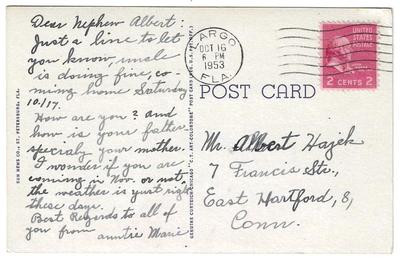 Dear Nephew Albert:
Just a line to let
you know, uncle
is doing fine, co-
ming home Saturday
10/17.
How are you? and
how is your father
specialy your mother.
I wonder if you are
coming in Nov. or not,
the weather is yust right
these days.
Best Regards to all of
you from auntie Marie
SUN NEWS CO., ST. PETERSBURG, FLA.
GENUINE CURTEICH-CHICAGO "C.T. ART-COLORTONE" POST CARD (REG. U.S. PAT. OFF.)
LARGO
OCT 16
6 PM
1953
FLA.
UNITED STATES
POSTAGE
2 CENTS 2
POST CARD
Mr. Albert Hajek
7 Francis Str.,
East Hartford, 8,
Conn.